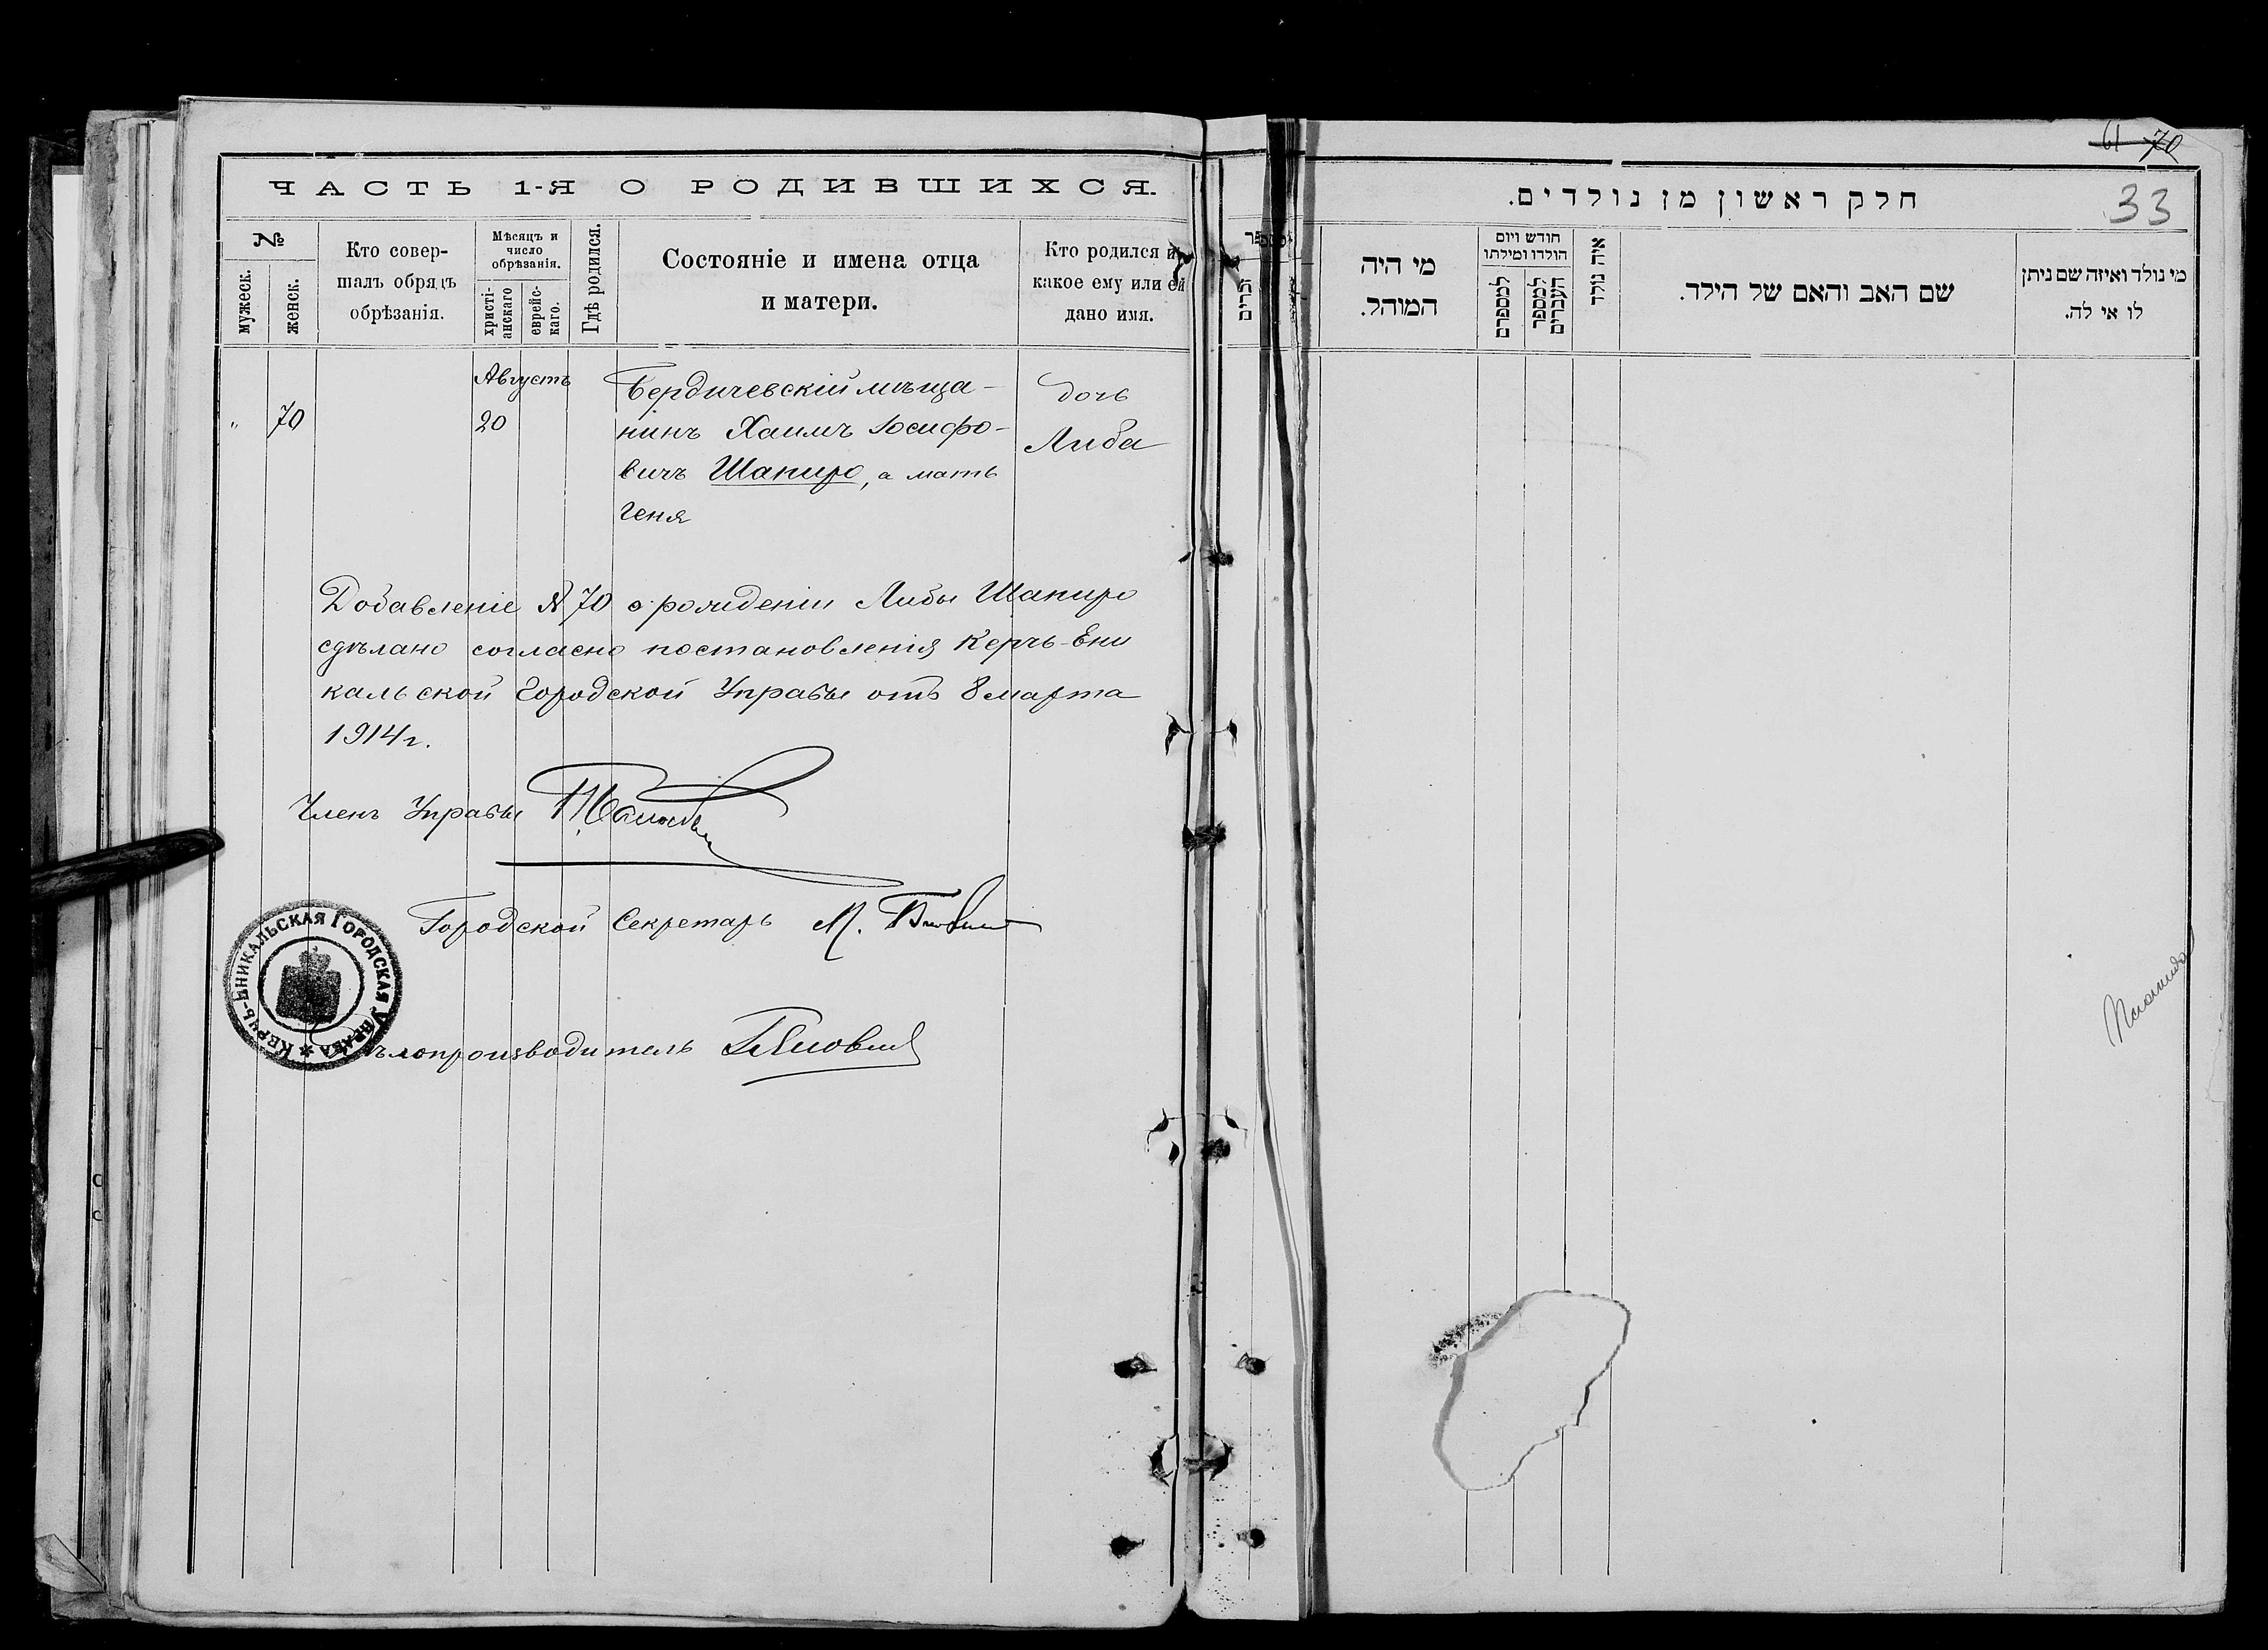 ЧАСТЬ 1-Я О РОДИВШИХСЯ.
№
мужеск.
женск.
Кто совер-
шалъ обрядъ
обрѣзанія.
Мѣсяцъ и
число
обрѣзанія.
христі-
анскаго
еврейс-
каго.
Гдѣ родился.
Состояніе и имена отца
и матери.
Кто родился и
какое ему или ей
дано имя.
"
70
Августъ
20
Бердичевскій мѣща-
нинъ Хаимъ Іосифо-
вичъ Шапиро, а мать
Геня
дочь
Либа
Добавленіе № 70 о рожденіи Либы Шапиро
сдѣлано согласно постановленія Керчь-Ени
кальской Городской Управы отъ 8 марта
1914 г.
Членъ Управы
Городской Секретарь М.
КЕРЧЬ-ЕНИКАЛЬСКАЯ ГОРОДСКАЯ УПРАВА
ѣлопроизводитель
61 70
33
חלק ראשון מן נולדים.
מי היה
המוהל.
חודש ויום
הולדו ומילתו
למספרם
למספר
העברים
איה נולד
שם האב והאם של הילד.
מי נולד ואיזה שם ניתן
לו אי לה.